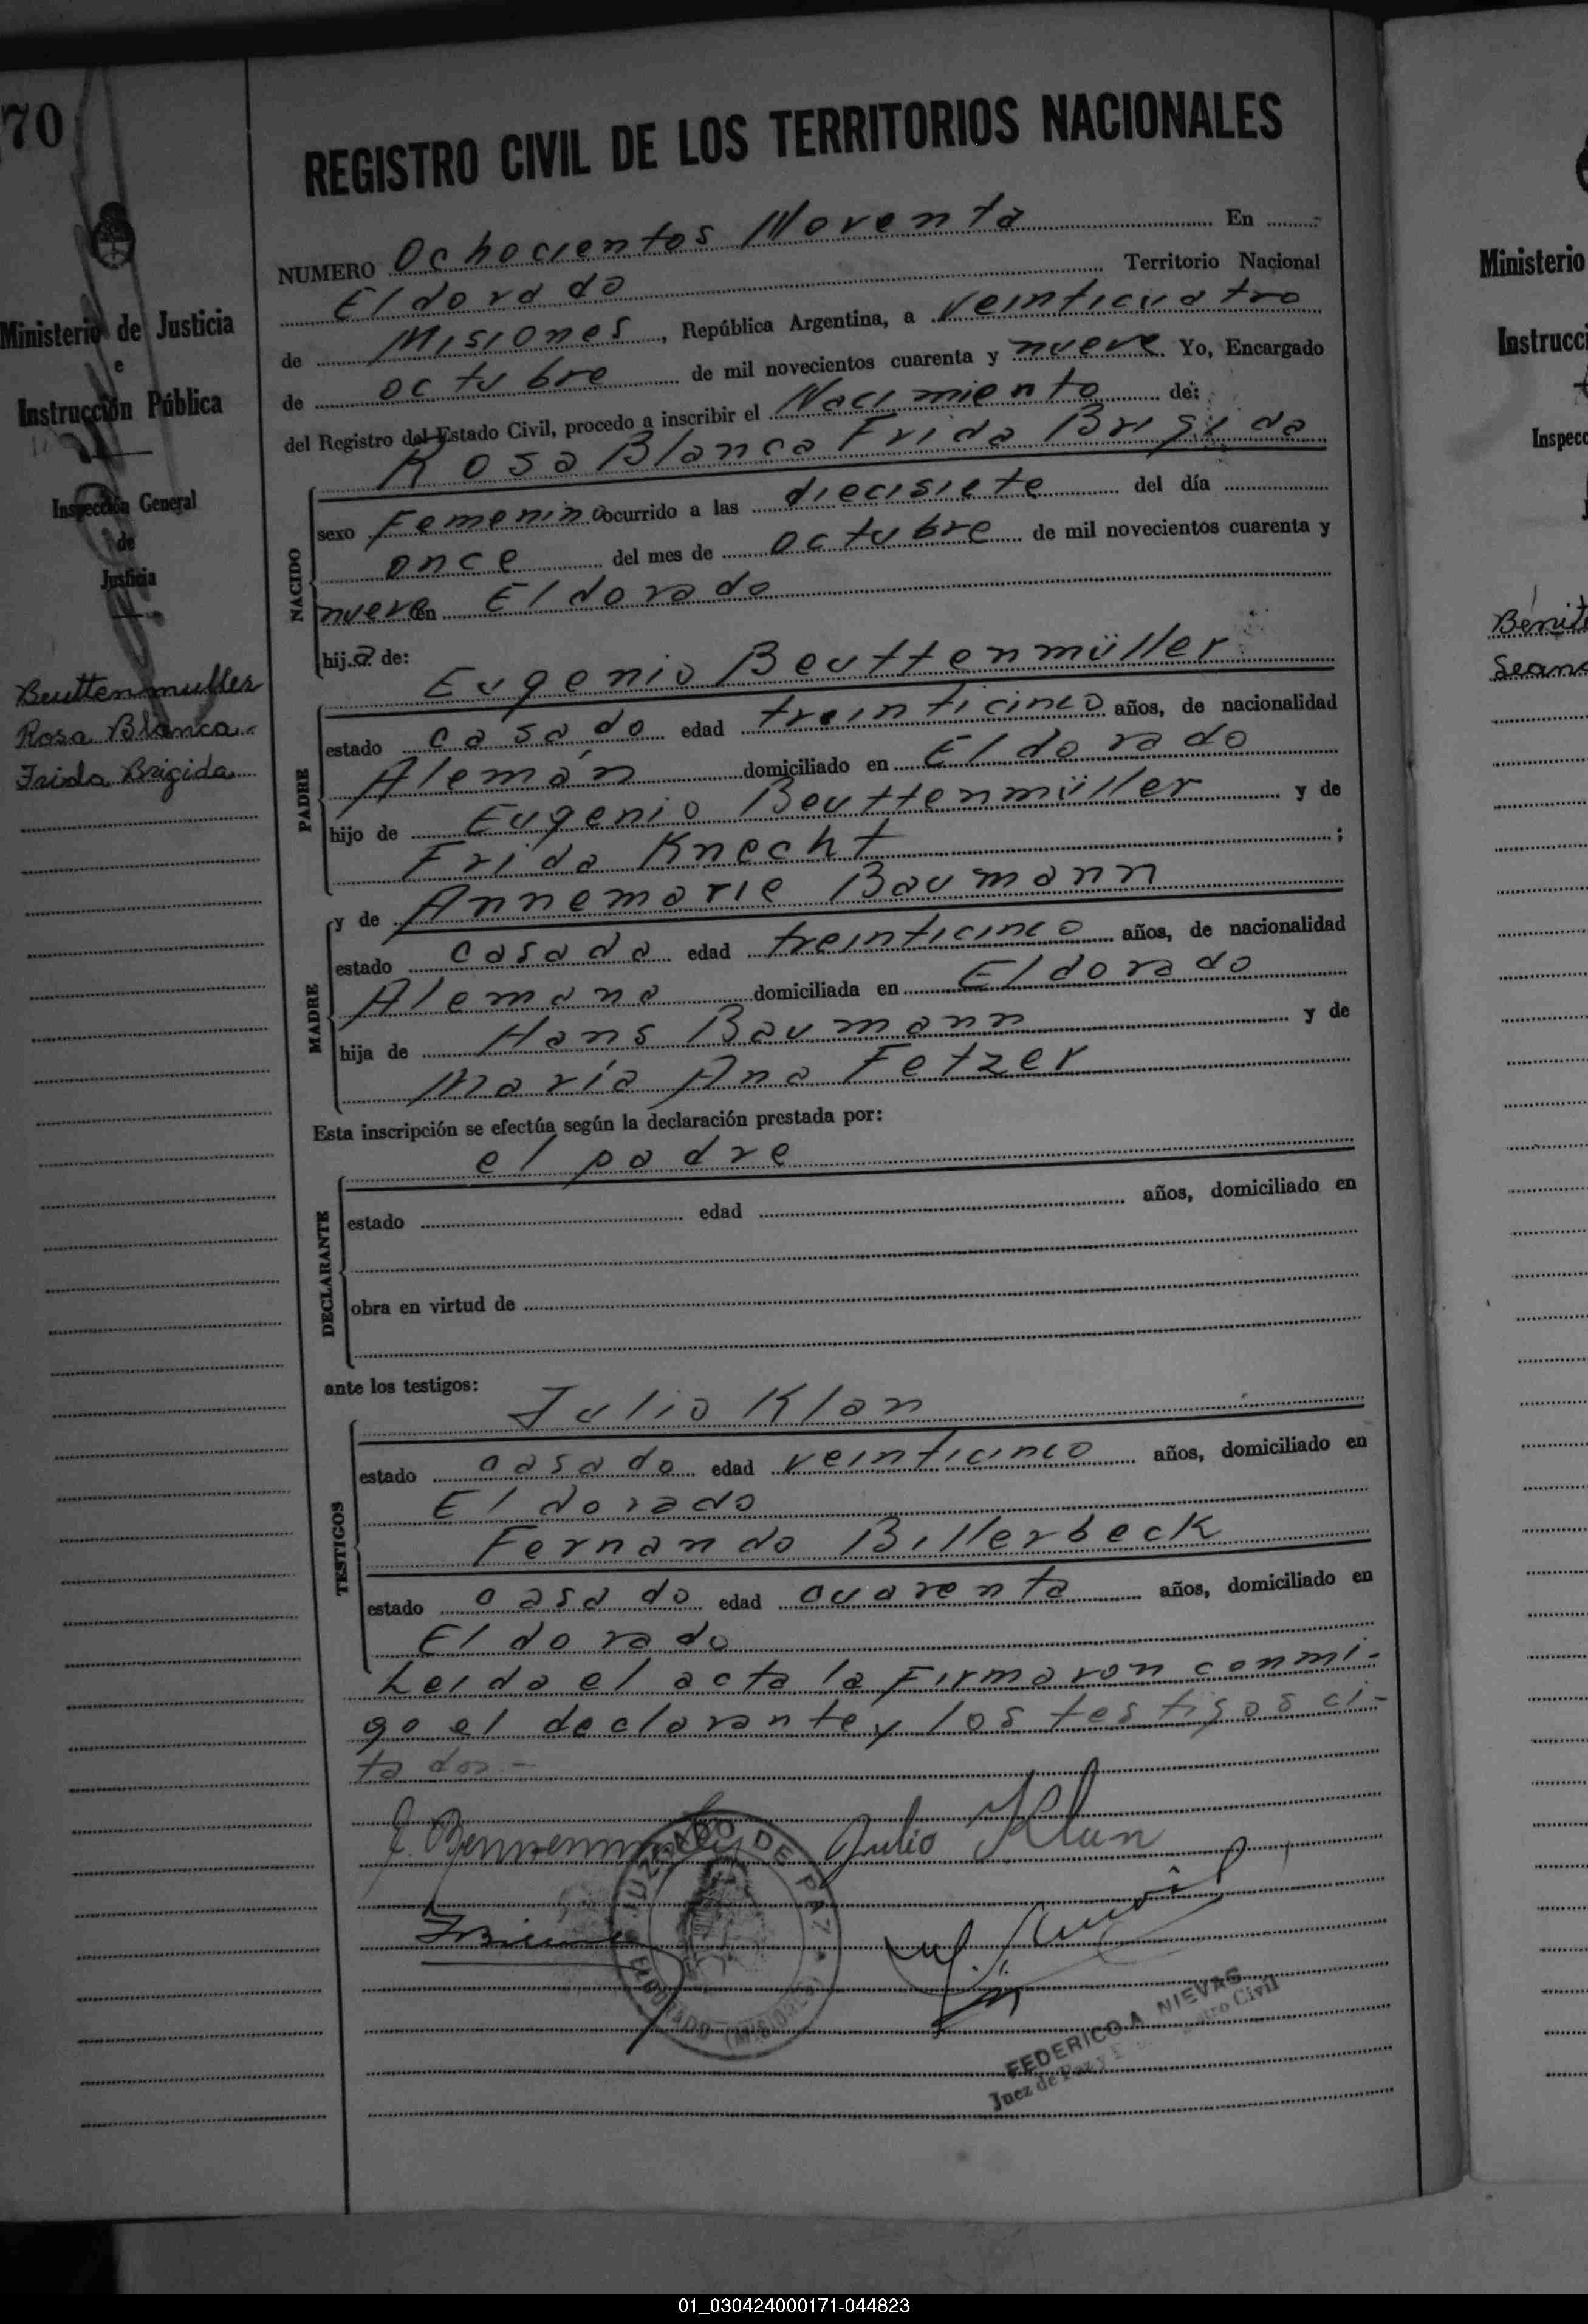 70
Ministerio de Justicia
e
Instrucción Pública
Inspección General
de
Justicia
Beuttenmuller
Rosa Blanca
Frida Brigida
REGISTRO CIVIL DE LOS TERRITORIOS NACIONALES
NUMERO Ochocientos Noventa En
Eldorado Territorio Nacional
de Misiones, República Argentina, a veinticuatro
de octubre de mil novecientos cuarenta y nueve Yo, Encargado
del Registro del Estado Civil, procedo a inscribir el Nacimiento de:
Rosa Blanca Frida Brigida
NACIDO
sexo Femenino ocurrido a las diecisiete del día
once del mes de octubre de mil novecientos cuarenta y
nueve en Eldorado
hij.a de:
PADRE
Eugenio Beuttenmüller
estado casado edad treinticinco años, de nacionalidad
Alemán domiciliado en Eldorado
hijo de Eugenio Beuttenmüller y de
Frida Knecht ;
MADRE
y de Annemarie Baumann
estado casada edad treinticinco años, de nacionalidad
Alemana domiciliada en Eldorado
hija de Hans Baumann y de
María Ana Fetzer
Esta inscripción se efectúa según la declaración prestada por:
el padre
DECLARANTE
estado edad años, domiciliado en
obra en virtud de
ante los testigos:
TESTIGOS
Julio Klan
estado casado edad veinticinco años, domiciliado en
Eldorado
Fernando Billerbeck
estado casado edad cuarenta años, domiciliado en
Eldorado
Leida el acta la firmaron conmi-
go el declarante y los testigos ci-
tados -
Julio Klan
JUZGADO DE PAZ
ELDORADO (MISIONES)
FEDERICO A. NIEVAS
Juez de Paz y Civil
Ministerio
Instrucci
Inspecc
Benit
01_030424000171-044823